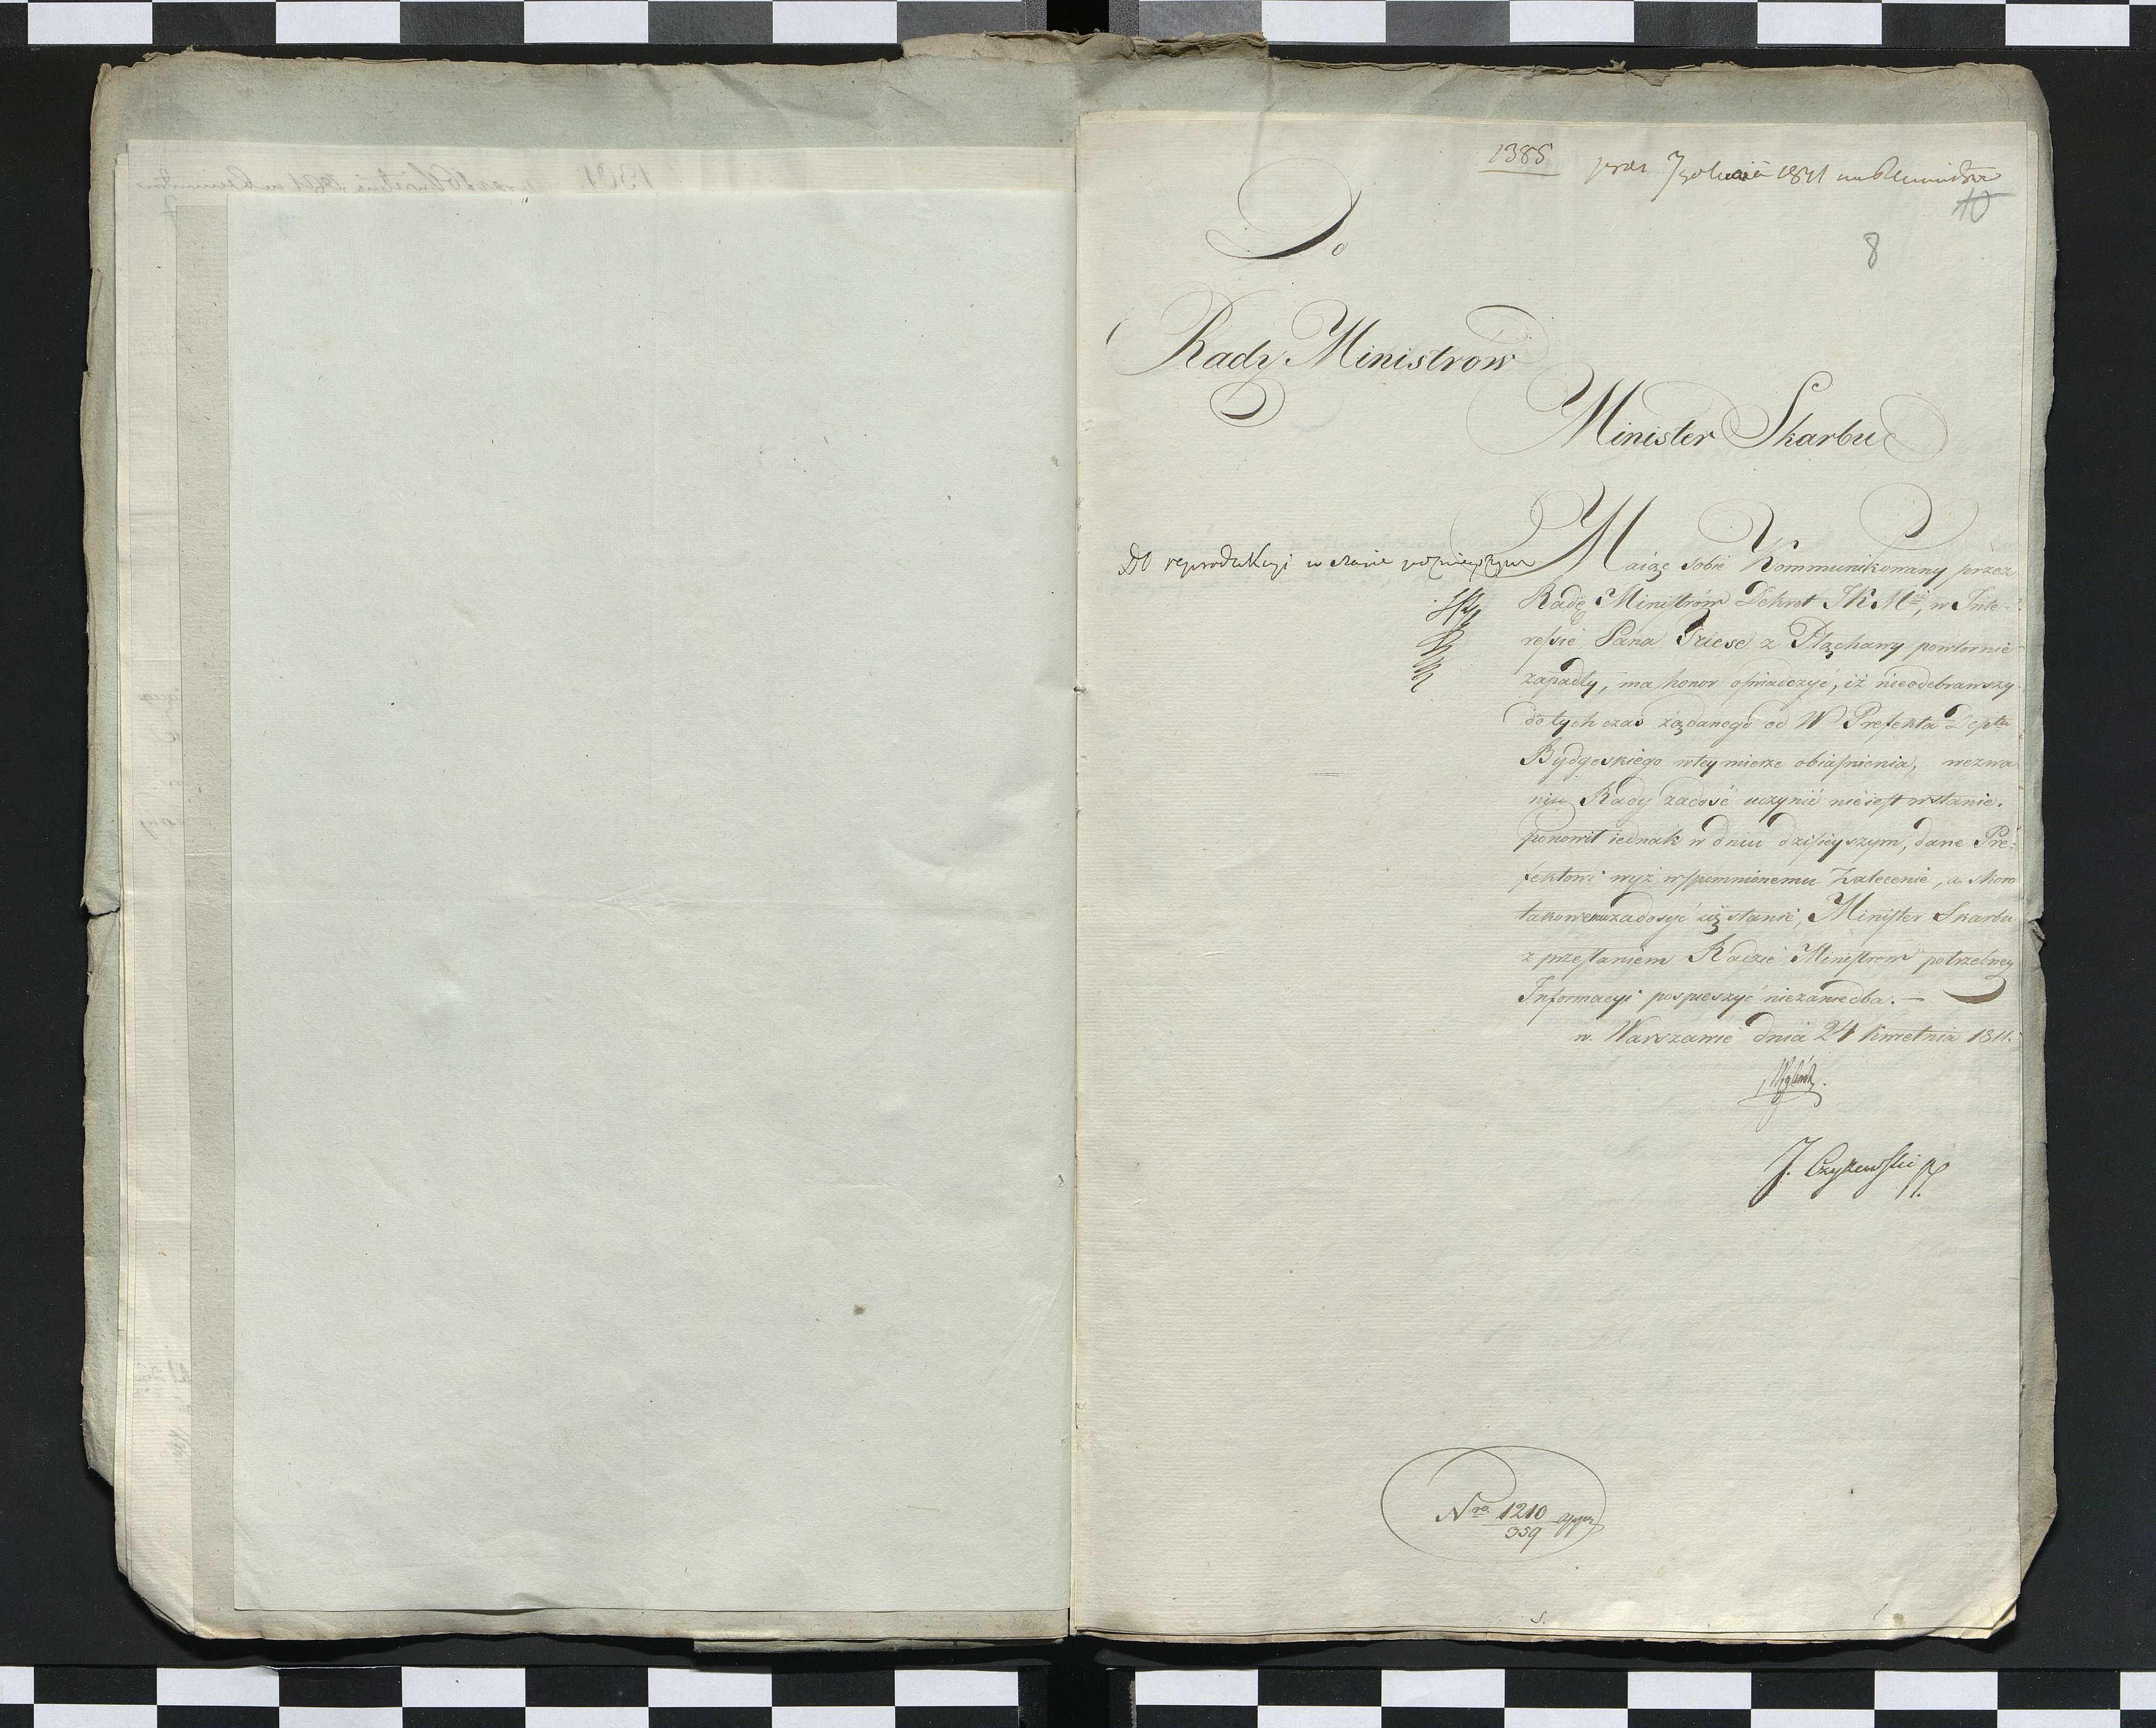 1385
1811
10
8
Do
Rady Ministrow
Minister Skarbu
Do reprodukcyi w czasie poznieyszym
Maiąc sobie Kommunikowany przez
Radę Ministrów Dekret JKMci, w Inte-
ressie Pana Triese z Płachawy powtornie
zapadły, ma honor oświadczyć, iż nieodebrawszy
dotychczas żądanego od W Prefekta Deptu
Bydgoskiego wtey mierze obiaśnienia, wezwa
niu Rady zadosć uczynić nieiest wstanie.
ponowił iednak w dniu dzisieyszym, dane Pre-
fektowi wyż wspomnionemu Zalecenie, a skoro
takowemu zadosyć się stanie, Minister Skarbu
z przesłaniem Radzie Ministrow potrzebney
Informacyi pospieszyć niezaniedba. —
w Warszawie dnia 24 Kwietnia 1811.
J. Czyżewski
Nro. 1210
359